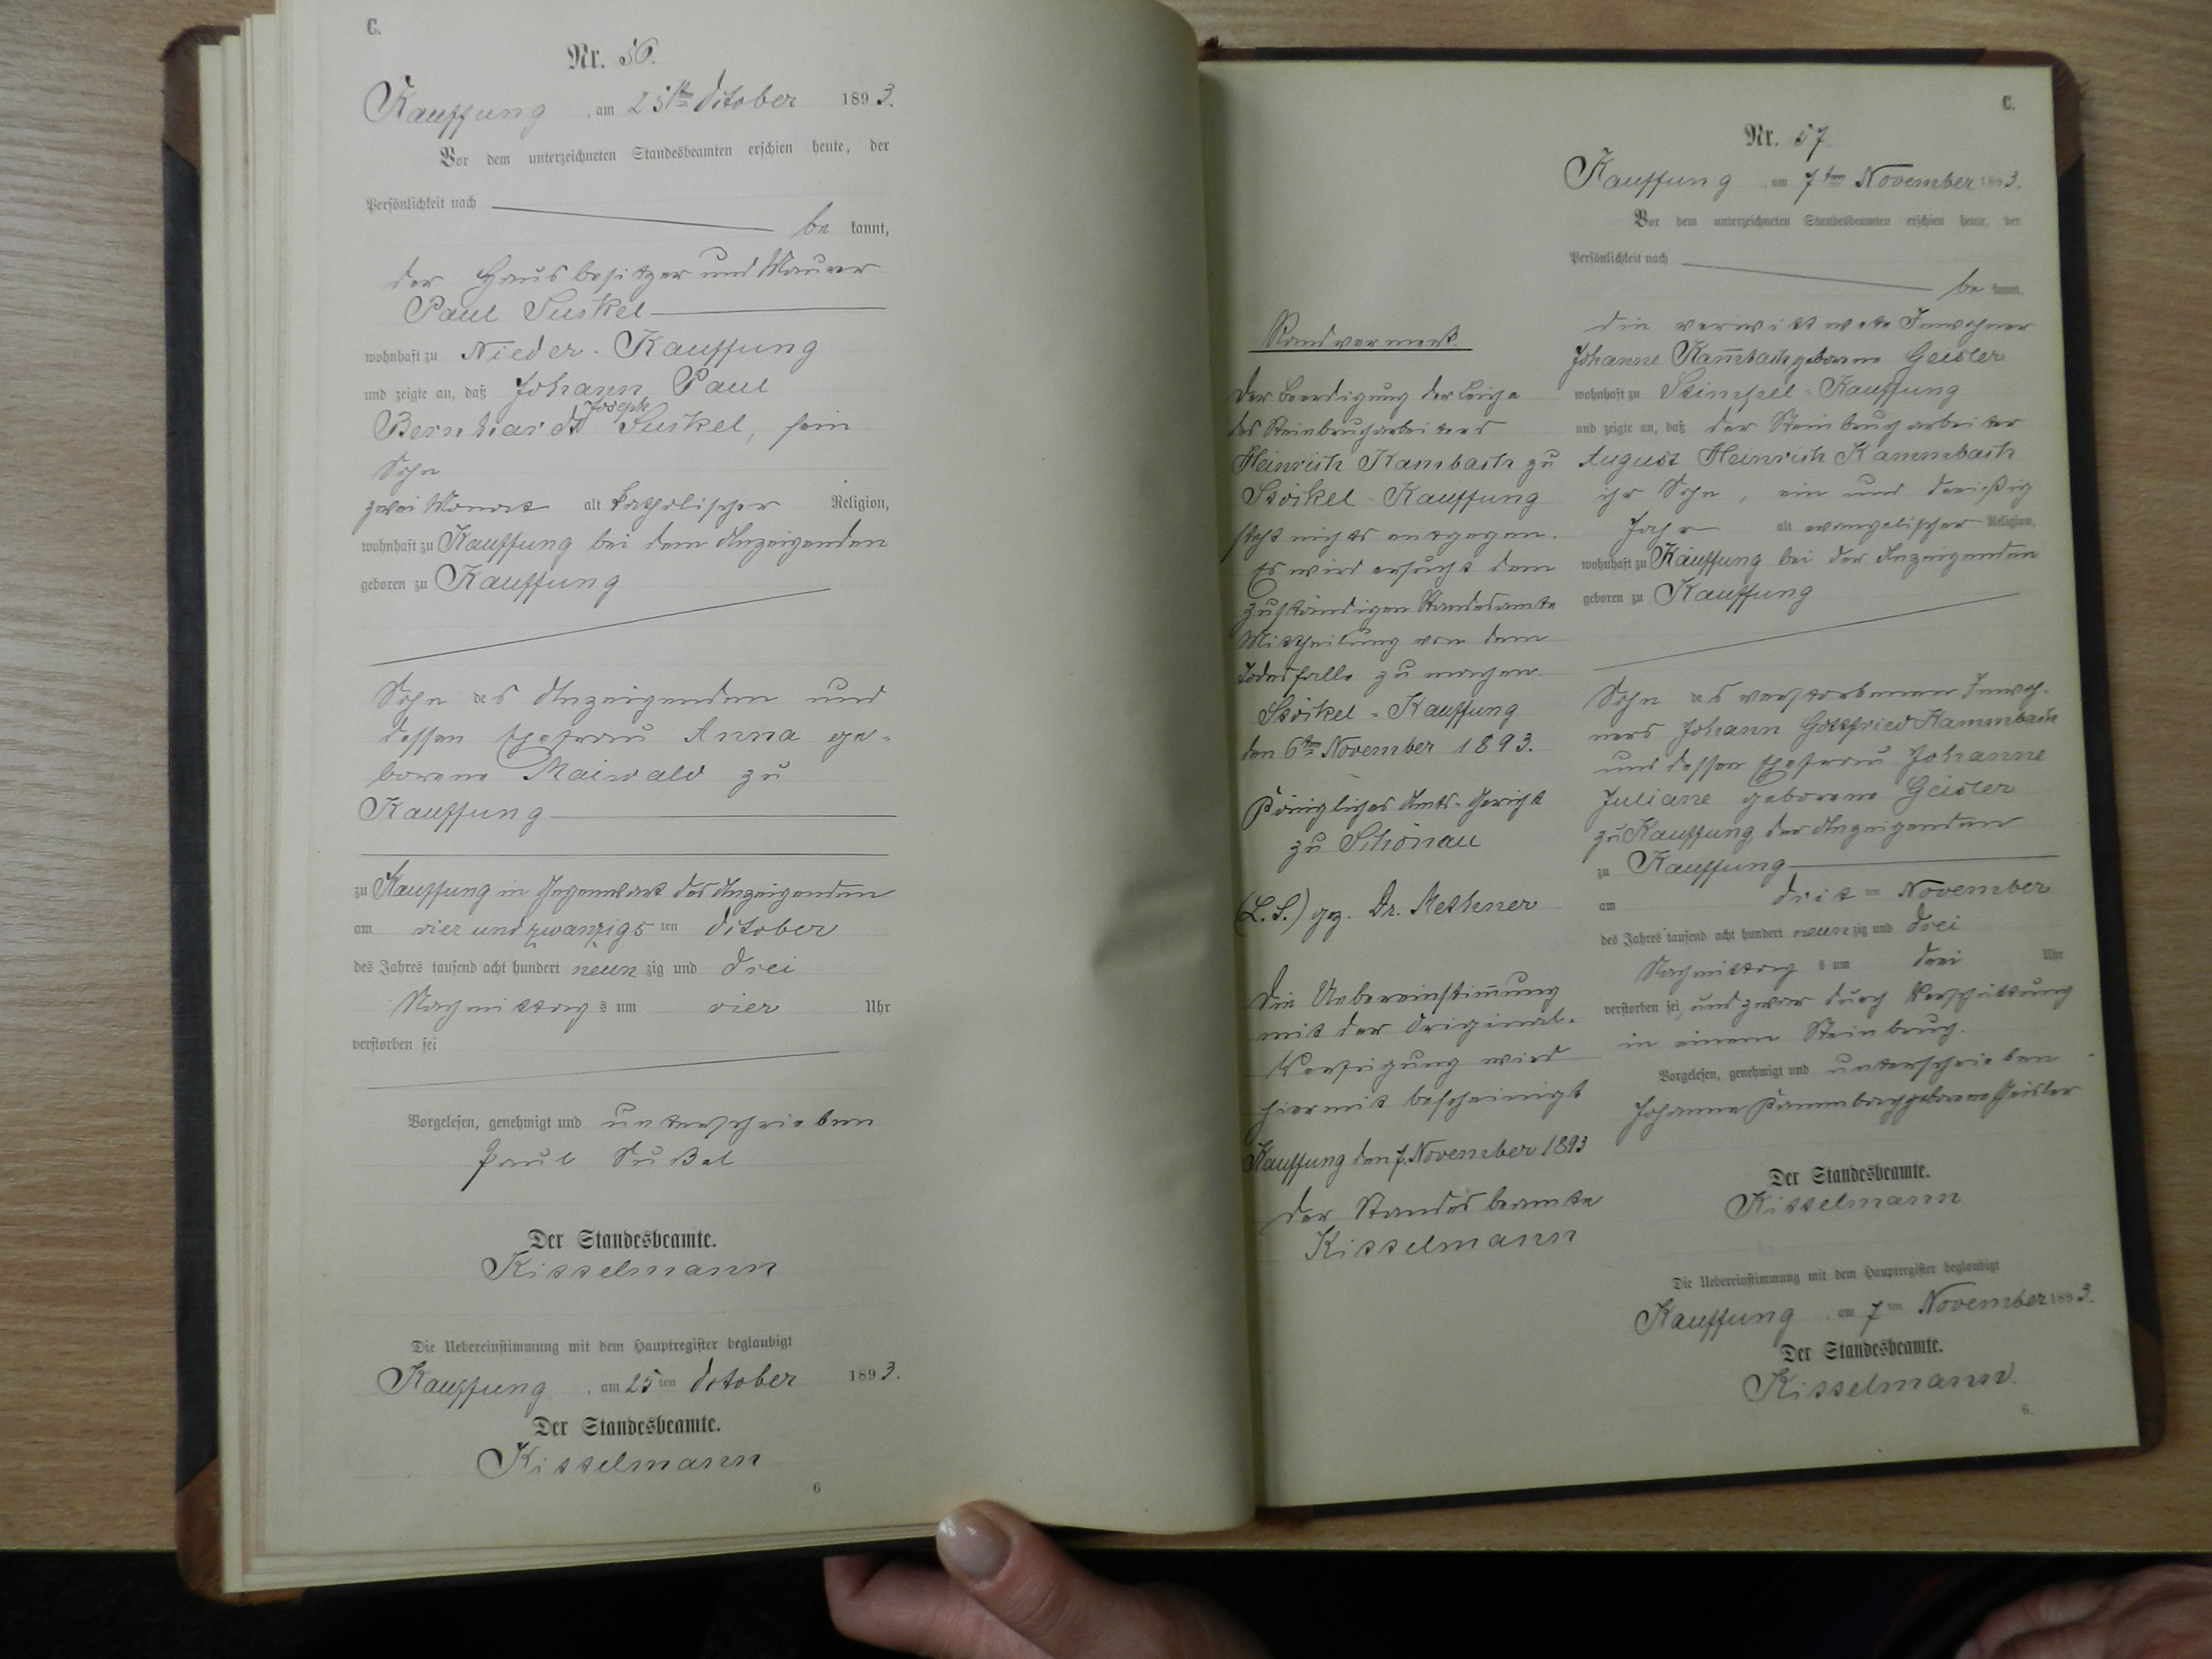 C.
Nr. 56.
Kauffung, am 25ten October 1893.
Vor dem unterzeichneten Standesbeamten erschien heute, der
Persönlichkeit nach
be kannt,
der Hausbesitzer und Maurer
Paul
wohnhaft zu Nieder-Kauffung
und zeigte an, daß Johann Paul
Joseph
Bernhardt, sein
Sohn
zwei Monat alt katholischer Religion,
wohnhaft zu Kauffung bei dem Anzeigenden
geboren zu Kauffung
Sohn des Anzeigenden und
dessen Ehefrau Anna ge-
borene Maiwald zu
Kauffung
zu Kauffung in Gegenwart des Anzeigenden
am vier und zwanzigsten October
des Jahres tausend acht hundert neunzig und drei
Nachmittags um vier Uhr
verstorben sei
Vorgelesen, genehmigt und unterschrieben
Paul
Der Standesbeamte.
Kisselmann
Die Uebereinstimmung mit dem Hauptregister beglaubigt
Kauffung, am 25ten October 1893.
Der Standesbeamte.
Kisselmann
6
C.
Nr. 57.
Kauffung, am 7ten November 1893.
Vor dem unterzeichneten Standesbeamten erschien heute, der
Persönlichkeit nach
be kannt,
die verwittwete Inwohner
Johanne Kam̅bach geborene Geisler
wohnhaft zu Stimpel-Kauffung
und zeigte an, daß der Steinbrucharbeiter
August Heinrich Kammbach
ihr Sohn, ein und dreißig
Jahr alt evangelischer Religion,
wohnhaft zu Kauffung bei der Anzeigenden
geboren zu Kauffung
Sohn des verstorbenen Inwoh-
ners Johann Gottfried Kammbach
und dessen Ehefrau Johanne
Juliane geborene Geisler
zu Kauffung, der Anzeigenden
zu Kauffung
am dritten November
des Jahres tausend acht hundert neunzig und drei
Nachmittags um drei Uhr
verstorben sei, und zwar durch Verschüttung
in einem Steinbruch.
Vorgelesen, genehmigt und unterschrieben
Johanne Kammbach geborene Geisler
Der Standesbeamte.
Kisselmann
Die Uebereinstimmung mit dem Hauptregister beglaubigt
Kauffung, am 7ten November 1893.
Der Standesbeamte.
Kisselmann.
6.
Randvermerk.
Der Beerdigung der Leiche
des Steinbrucharbeiters
Heinrich Kambach zu
Stöckel-Kauffung
steht nichts entgegen.
Es wird ersucht dem
zuständigen Standesamte
Mittheilung von dem
Todesfalle zu machen.
Stöckel-Kauffung
den 6ten November 1893.
Königliches Amts-Gericht
zu Schönau
(L.S.) gez. Dr. Methner
Die Uebereinstim̅ung
mit der Original-
Verfügung wird
hiermit bescheinigt
Kauffung den 7. November 1893
Der Standesbeamte
Kisselmann